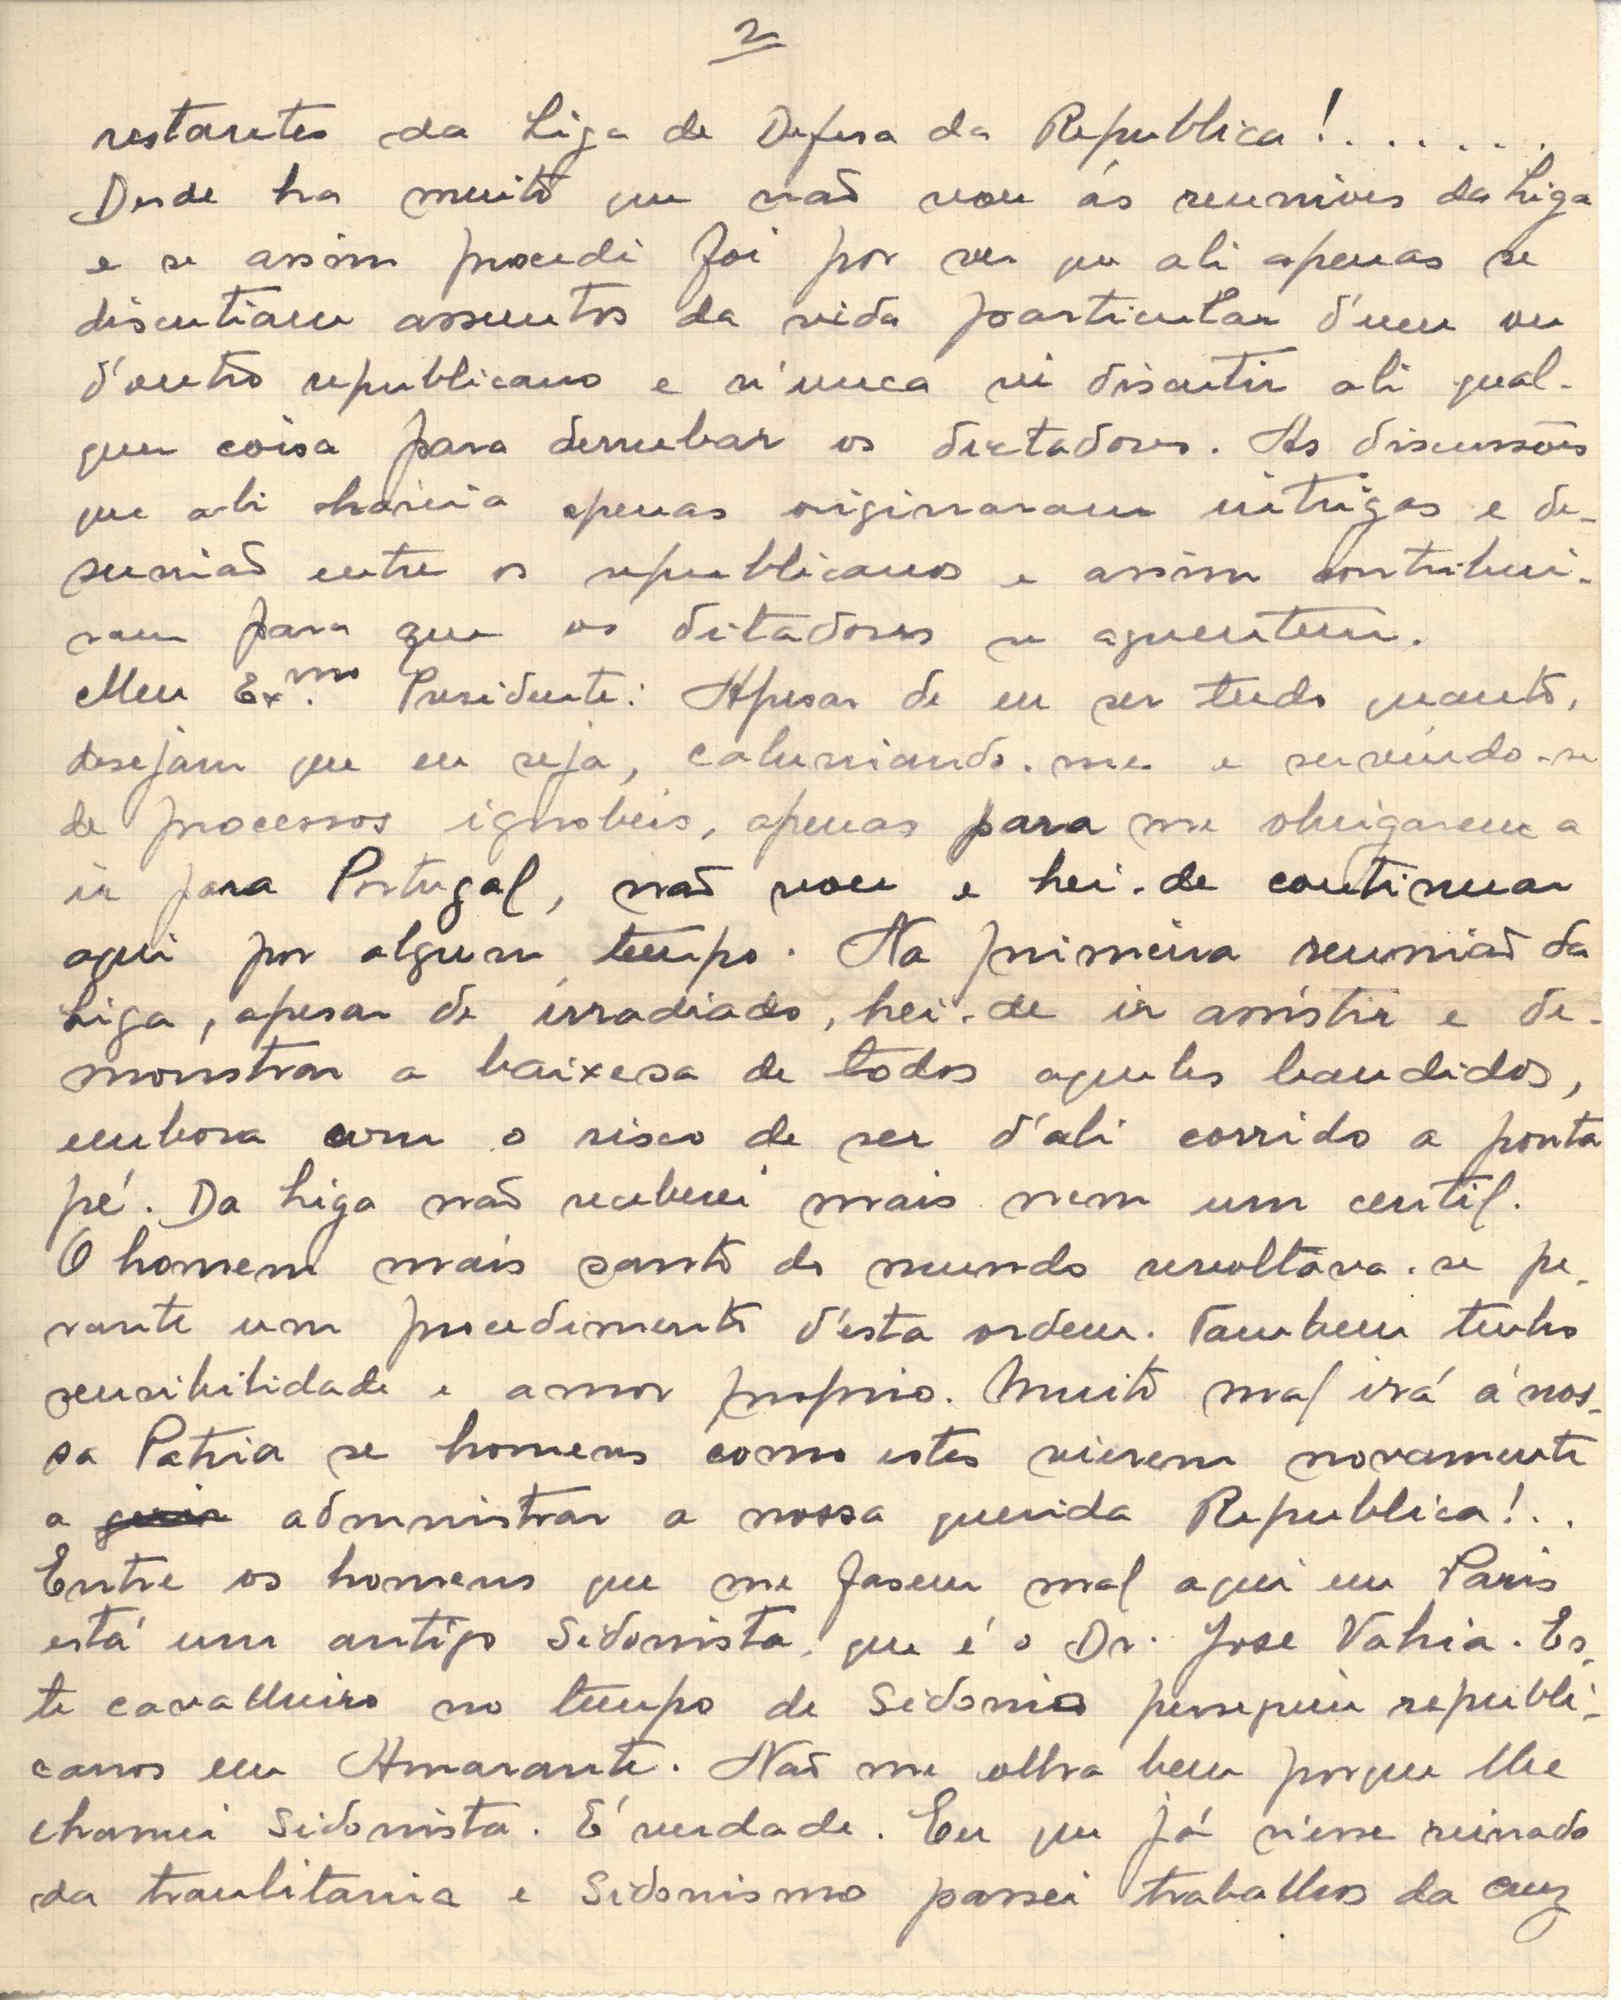 2
restantes da Liga de Defesa da Republica!.......
Desde ha muito que não vou ás reuniões da Liga
e se assim procedi foi por ver que ali apenas se
discutiam assuntos da vida particular d'um ou
d'outro republicano e n'unca vi discutir ali qual-
quer coisa para derrubar os dictadores. As discussões
que ali havia apenas originaram intrigas e de-
sunião entre os republicanos e assim contribui-
ram para que os ditadores se aguentem.
Meu Ex.mo Presidente: Apesar de eu ser tudo quanto,
desejam que eu seja, caluniando-me e servindo-se
de processos ignobeis, apenas para me obrigarem a
ir para Portugal, não vou e hei-de continuar
aqui por algum tempo. Na primeira reunião da
Liga, apesar de irradiado, hei-de ir assistir e de-
monstrar a baixesa de todos aqueles bandidos,
embora com o risco de ser d'ali corrido a ponta
pé. Da Liga não receberei mais nem um centil.
O homem mais santo do mundo revoltava-se pe-
rante um procedimento d'esta ordem. Tambem tenho
sensibilidade e amor proprio. Muito mal irá á nos-
sa Patria se homens como estes vierem novamente
a guir admnistrar a nossa querida Republica!..
Entre os homens que me fasem mal aqui em Paris
está um antigo Sidonista, que é o Dr. Jose Vahia. Es-
te cavalheiro no tempo de Sidonio perseguiu republi-
canos em Amarante. Não me olha bem porque lhe
chamei Sidonista. É verdade. Eu que já n'esse reinado
da traulitania e Sidonismo passei trabalhos da cruz